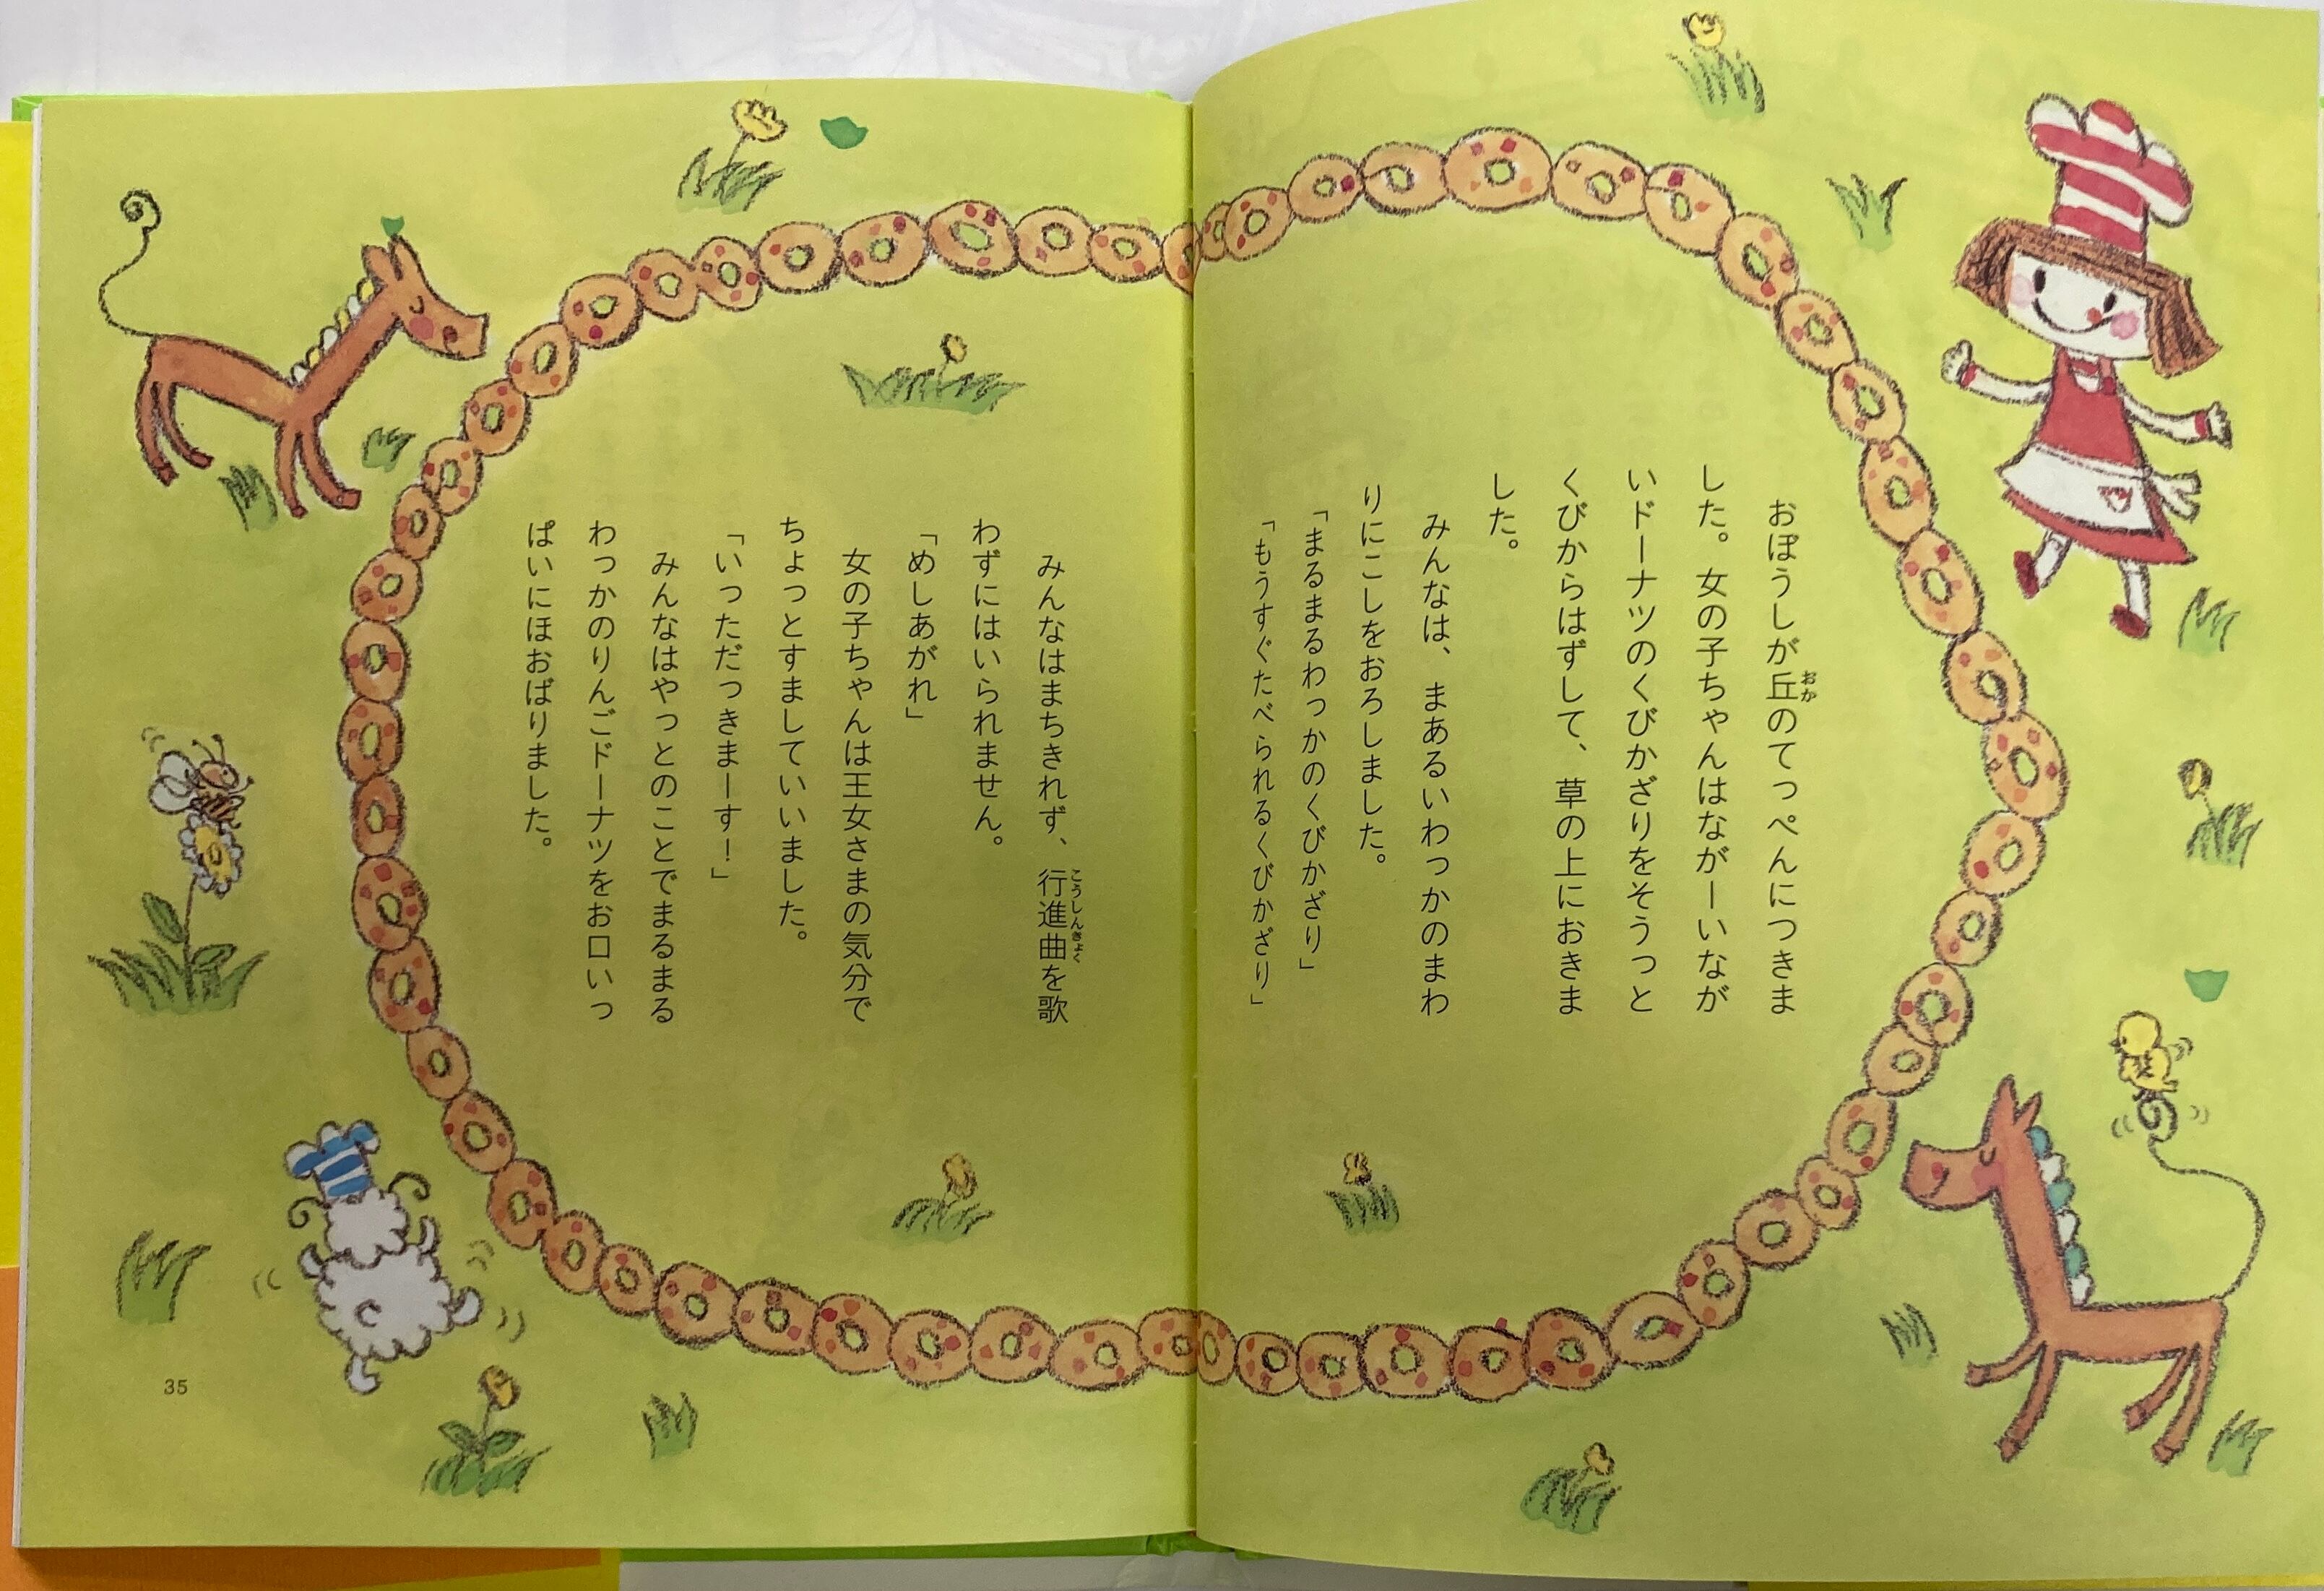 おぼうしが丘のてっぺんにつきま
した。女の子ちゃんはなが－いなが
いドーナツのくびかざりをそうっと
くびからはずして、草の上におきま
した。
みんなは、まあるいわっかのまわ
りにこしをおろしました。
「まるまるわっかのくびかざり」
「もうすぐたべられるくびかざり」
みんなはまちきれず、行進曲を歌
わずにはいられません。
「めしあがれ」
女の子ちゃんは王女さまの気分で
ちょっとすましていいました。
「いっただっきまーす！」
みんなはやっとのことでまるまる
わっかのりんごドーナツをお口いっ
ぱいにほおばりました。
35